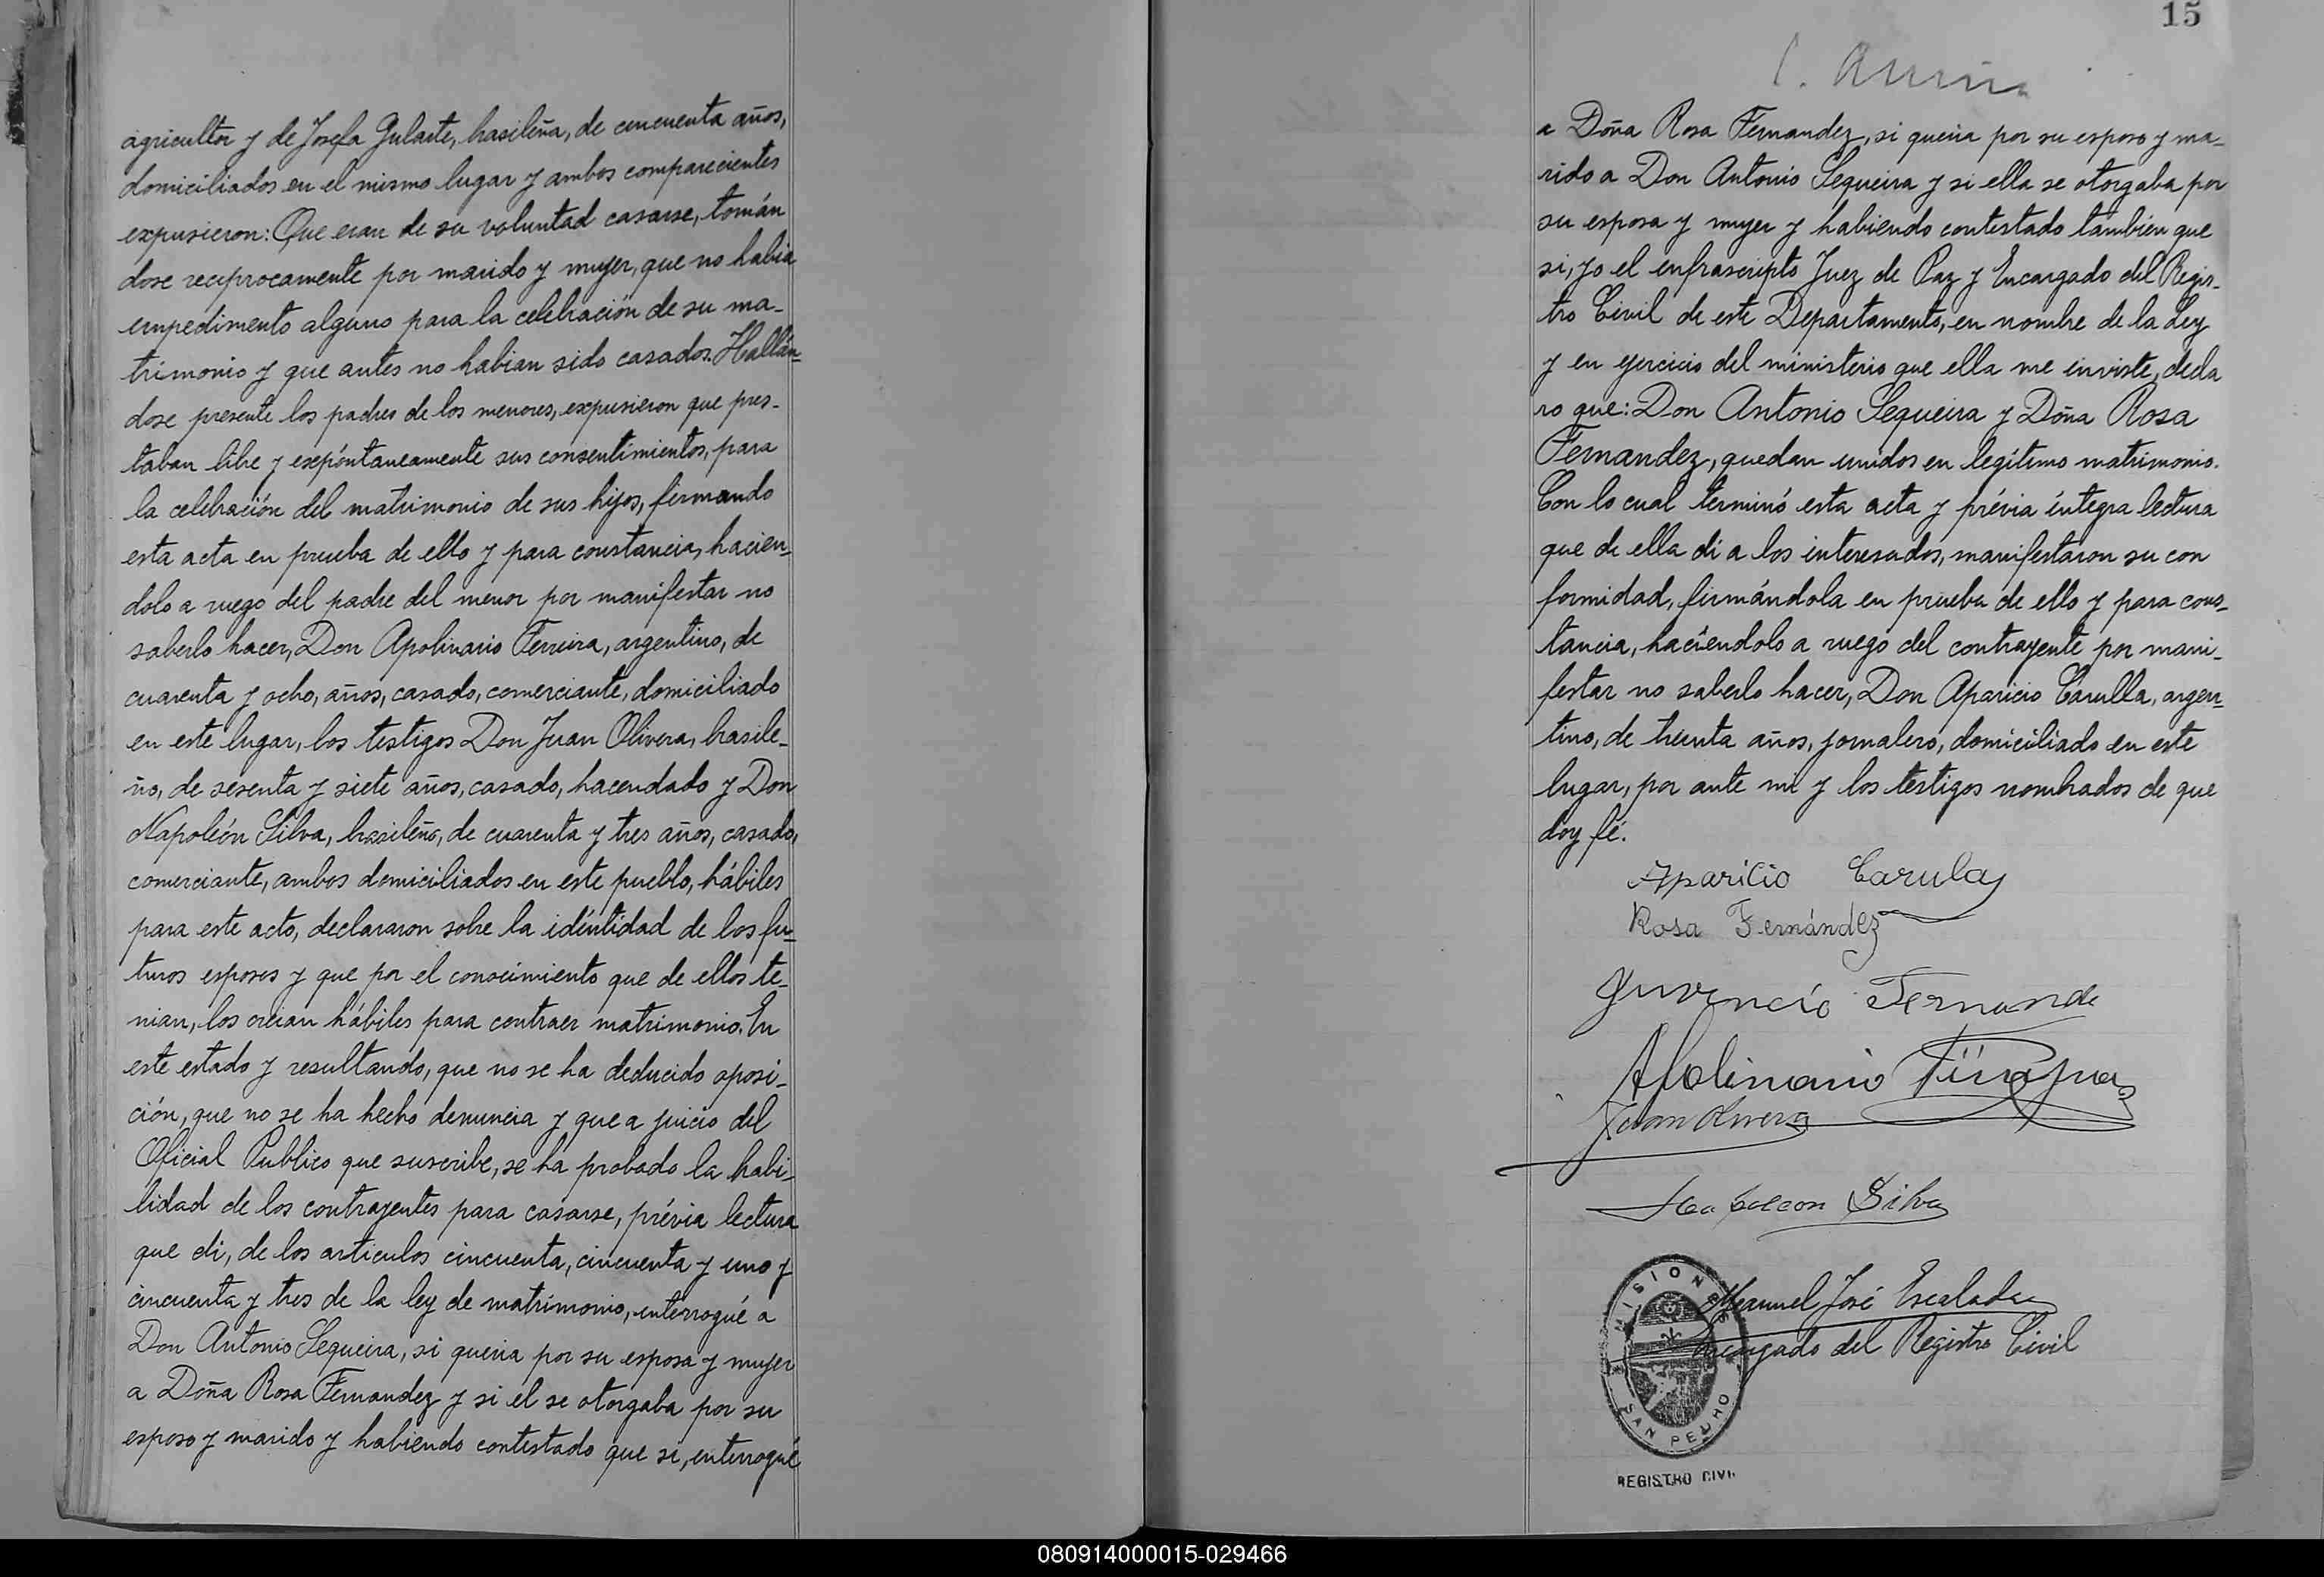 agricultor y de Josefa Gularte, brasileña, de cincuenta años,
domiciliados en el mismo lugar y ambos comparecientes
expusieron: Que eran de su voluntad casarse, tomán
dose reciprocamente por marido y mujer, que no habia
impedimento alguno para la celebración de su ma-
trimonio y que antes no habian sido casados. Hallán-
dose presente los padres de los menores, expusieron que pres-
taban libre y expóntaneamente sus consentimientos, para
la celebración del matrimonio de sus hijos, firmando
esta acta en prueba de ello y para constancia, hacien-
dolo a ruego del padre del menor por manifestar no
saberlo hacer, Don Apolinario Ferreira, argentino, de
cuarenta y ocho, años, casado, comerciante, domiciliado
en este lugar, los testigos Don Juan Olivera, brasile-
ño, de sesenta y siete años, casado, hacendado y Don
Napoleón Silva, brasileño, de cuarenta y tres años, casado,
comerciante, ambos domiciliados en este pueblo, hábiles
para este acto, declararon sobre la idéntidad de los fu-
turos esposos y que por el conocimiento que de ellos te-
nian, los creian hábiles para contraer matrimonio. En
este estado y resultando, que no se ha deducido oposi-
ción, que no se ha hecho denuncia y que a juicio del
Oficial Publico que suscribe, se ha probado la habi-
lidad de los contrayentes para casarse, prévia lectura
que di, de los articulos cincuenta, cincuenta y uno y
cincuenta y tres de la ley de matrimonio, interrogué a
Don Antonio Sequeira, si queria por su esposa y mujer
a Doña Rosa Fernandez y si el se otorgaba por su
esposo y marido y habiendo contestado que si, interrogué
15
a Doña Rosa Fernandez, si queria por su esposo y ma-
rido a Don Antonio Sequeira y si ella se otorgaba por
su esposa y mujer y habiendo contestado también que
si, yo el infrascripto Juez de Paz y Encargado del Regis-
tro Civil de este Departamento, en nombre de la Ley
y en ejercicio del ministerio que ella me inviste, decla
ro que: Don Antonio Sequeira y Doña Rosa
Fernandez, quedan unidos en legítimo matrimonio.
Con lo cual terminó esta acta y prévia íntegra lectura
que de ella di a los interesados, manifestaron su con
formidad, firmándola en prueba de ello y para cons-
tancia, haciéndolo a ruego del contrayente por mani-
festar no saberlo hacer, Don Aparicio Carulla, argen-
tino, de treinta años, jornalero, domiciliado en este
lugar, por ante mi y los testigos nombrados de que
doy fé.
Aparicio Carula
Rosa Fernández
Juvencio Fernande
Apolinario
Juan Olivera
Napoleon Silva
Manuel José Escalada
Encargado del Registro Civil
MISIONES
SAN PEDRO
REGISTRO CIVIL
080914000015-029466